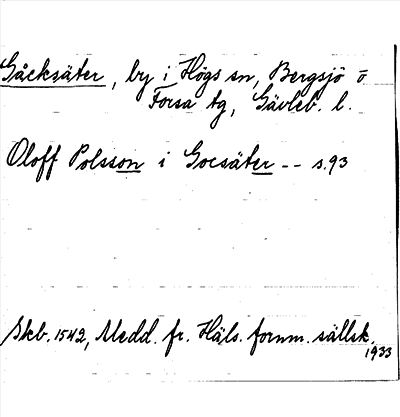 Gåcksäter, by i Högs sn, Bergsjö o
Forsa tg, Gävleb. l.
Oloff Polsson i Gocsäter -- s. 93
Skb. 1542, Medd. fr. Häls. fornm. sällsk.
1933